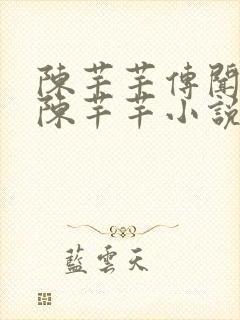 陳芊芊傳聞
陳芊芊小說
藍雲天